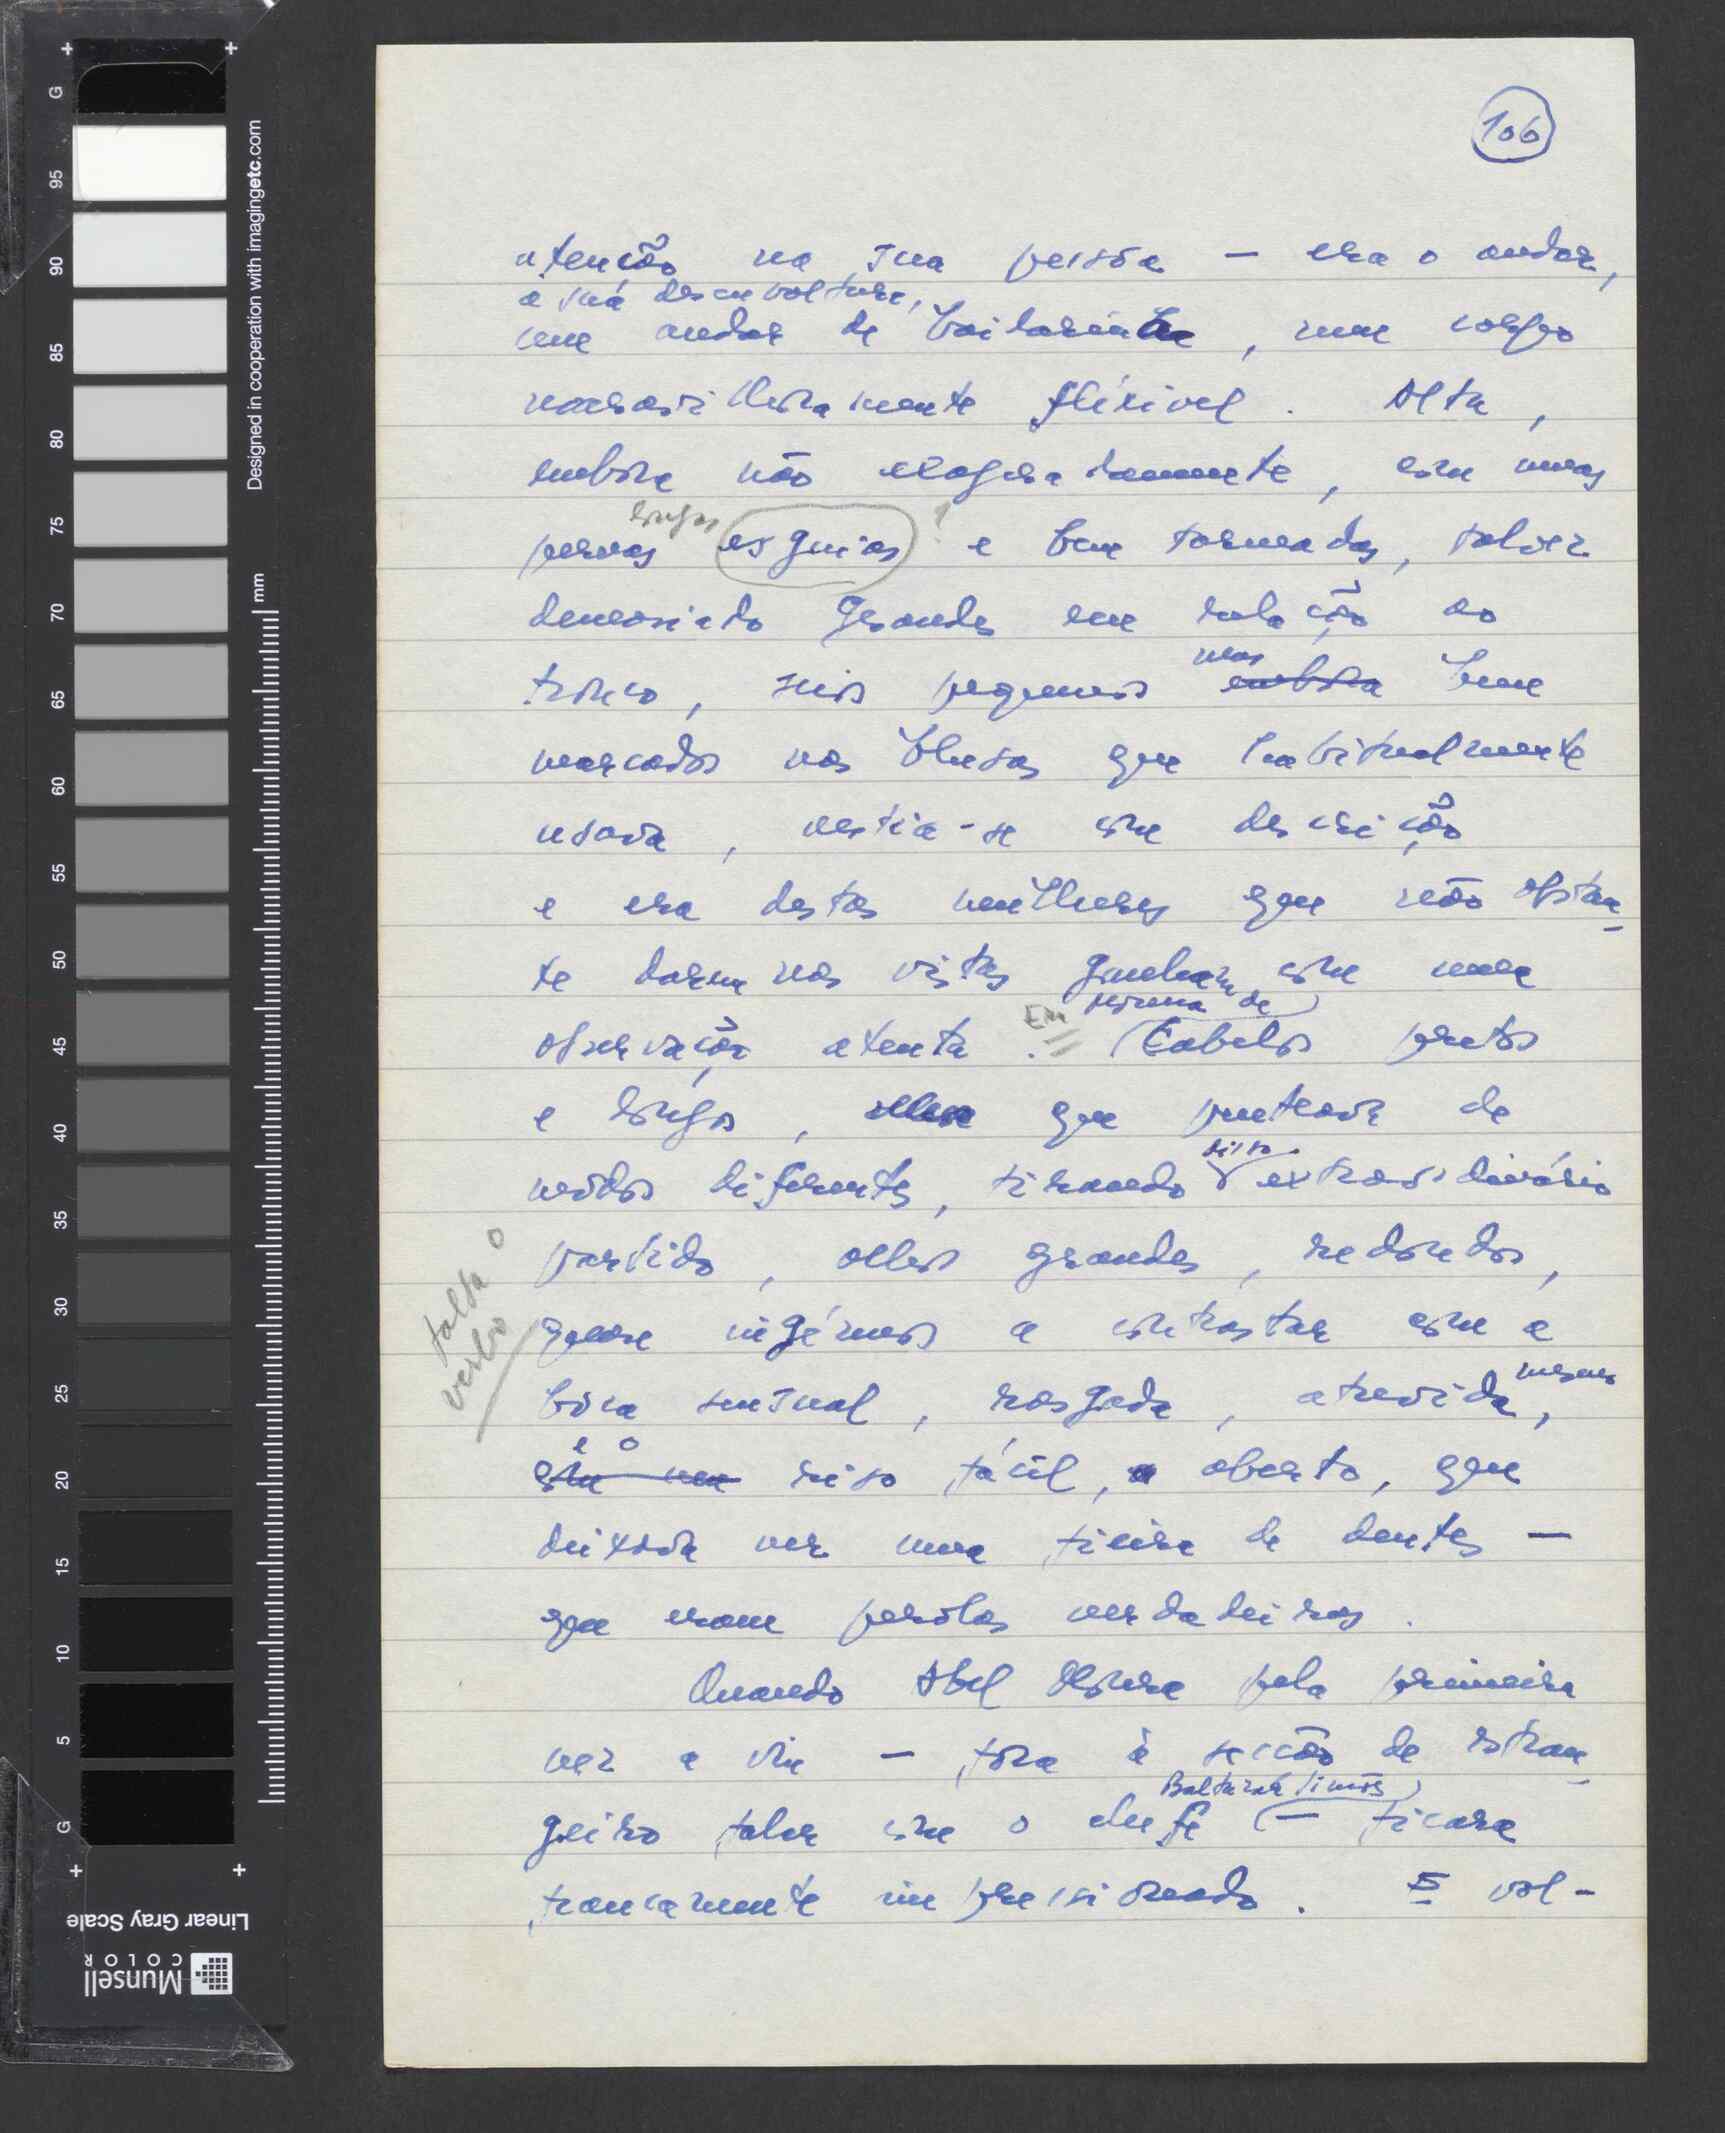 106
atenção na sua pessôa — era o andar,
a sua desenvoltura,
um andar de bailarina, num corpo
maravilhosamente flèxivel. Alta,
embora não exageradamente, com umas
longas
pernas esguias ? e bem torneadas, talvez
demasiado grandes em relação ao
mas
tronco, seios pequenos embora bem
marcados nas blusas que habitualmente
usava, vestia-se com descrição
e era destas mulheres que não obstan-
te darem nas vistas ganham com uma
Em dona de
observação atenta. Cabelos pretos
e longos, que penteava de
disso
modos diferentes, tirando extraordinário
partido, olhos grandes, redondos,
falta o
verbo
quase ingénuos a contrastar com a
mesmo
boca sensual, rasgada, atrevida,
e o
com um riso fácil, aberto, que
deixava ver uma fieira de dentes —
que eram perolas verdadeiras.
Quando Abel Moura pela primeira
vez a viu — fora à secção de estran-
Baltazar Simões
geiro falar com o chefe — ficara
francamente impressionado. E vol-
Designed in cooperation with imagingetc.com
mm
G
95
90
85
80
75
70
65
60
55
50
45
40
35
30
25
20
15
10
5
G
Linear Gray Scale
Munsell
COLOR